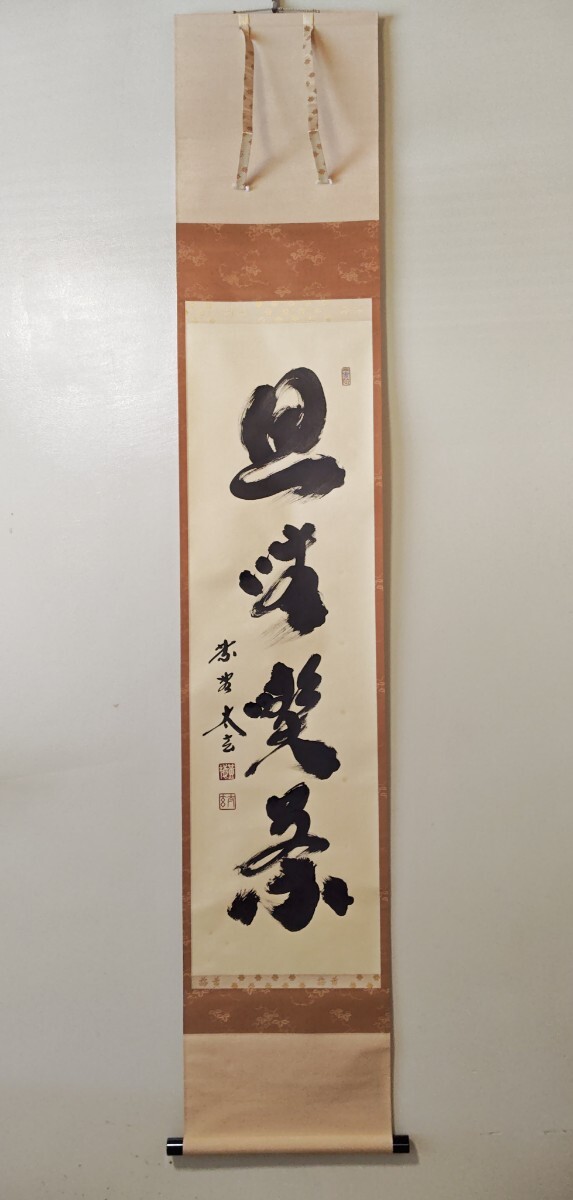 且坐喫茶
紫野 太玄